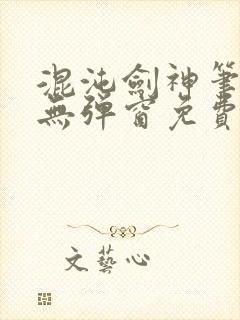 混沌劍神筆
無彈窗免費
文藝心